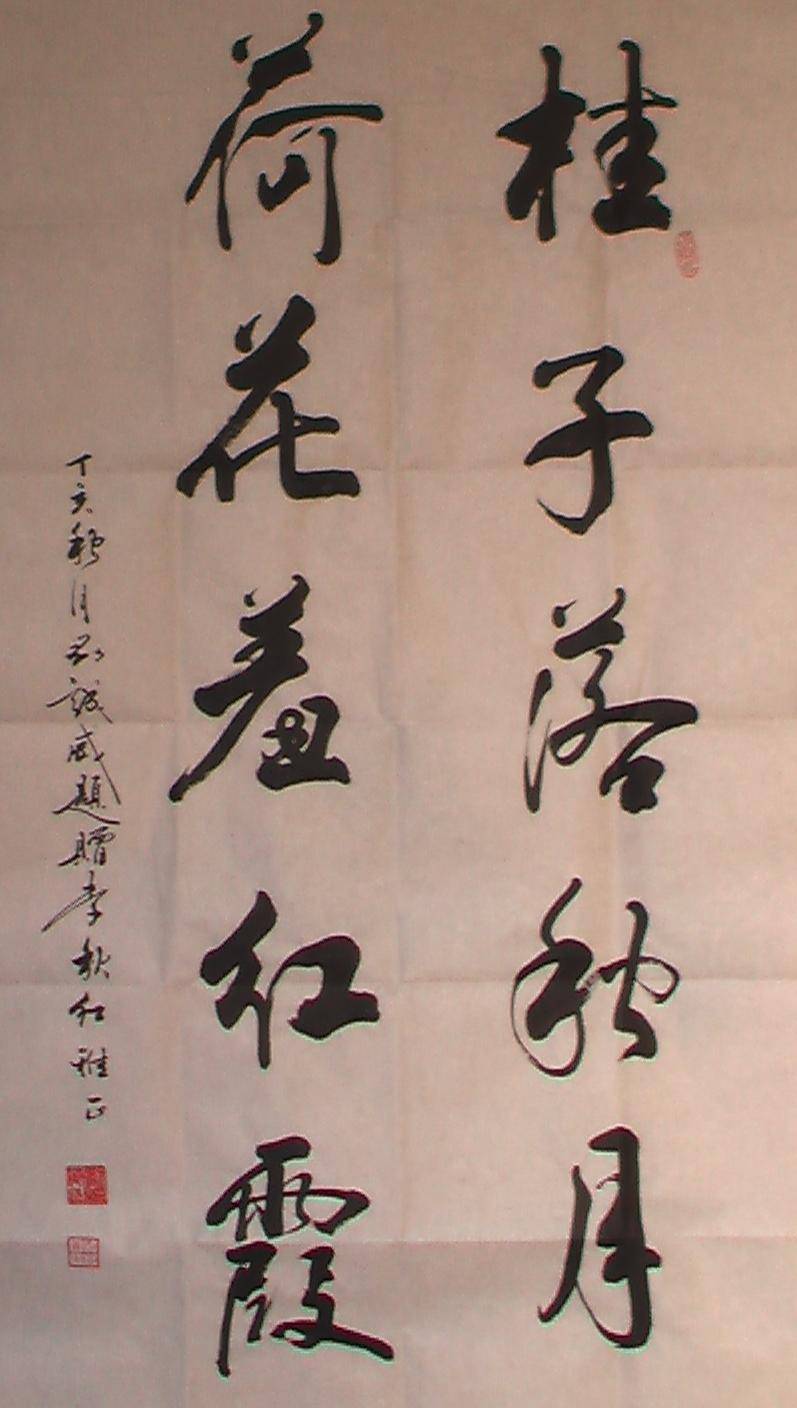 桂子落秋月
荷花羞红霞
丁亥秋月刘诚威题赠李秋红雅正